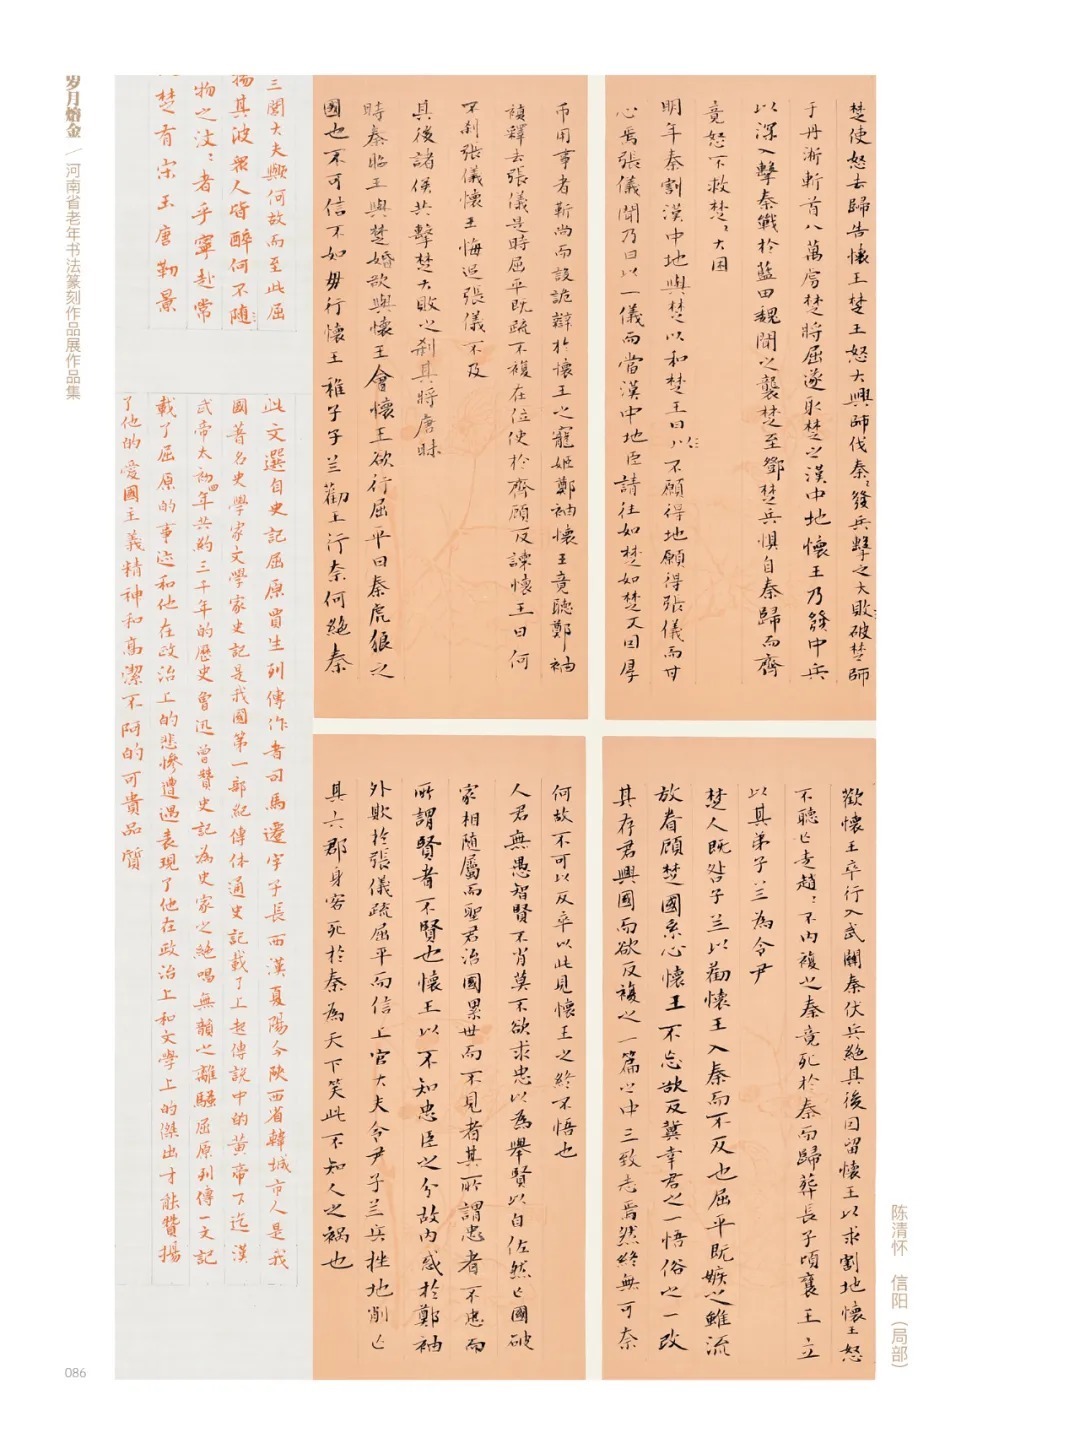 岁月熔金 / 河南省老年书法篆刻作品展作品集
楚使怒去歸告懷王楚王怒大興師伐秦〻發兵擊之大敗破楚師
于丹淅斬首八萬虜楚將屈遂取楚之漢中地懷王乃發中兵
以深入擊秦戰於藍田魏聞之襲楚至鄧楚兵懼自秦歸而齊
竟怒不救楚〻大困
明年秦割漢中地與楚以和楚王曰不願得地願得張儀而甘
心焉張儀聞乃曰以一儀而當漢中地臣請往如楚如楚又因厚
币用事者靳尚而設詭辯於懷王之寵姬鄭袖懷王竟聽鄭袖
複釋去張儀是時屈平既疏不複在位使於齊顧反諫懷王曰何
不刹張儀懷王悔追張儀不及
其後諸侯共擊楚大敗之刹其將唐昧
時秦昭王與楚婚欲與懷王會懷王欲行屈平曰秦虎狼之
國也不可信不如毋行懷王稚子子兰勸王行奈何絕秦
歡懷王卒行入武關秦伏兵絕其後因留懷王以求割地懷王怒
不聽亡走趙〻不內複之秦竟死於秦而歸葬長子頃襄王立
以其弟子兰為令尹
楚人既咎子兰以勸懷王入秦而不反也屈平既嫉之雖流
放眷顧楚國系心懷王不忘欲反冀幸君之一悟俗之一改
其存君興國而欲反複之一篇之中三致志焉然終無可奈
何故不可以反卒以此見懷王之終不悟也
人君無愚智賢不肖莫不欲求忠以為舉賢以自佐然亡國破
家相隨屬而聖君治國累世而不見者其所謂忠者不忠而
所謂賢者不賢也懷王以不知忠臣之分故內惑於鄭袖
外欺於張儀疏屈平而信上官大夫令尹子兰兵挫地削亡
其六郡身客死於秦為天下笑此不知人之禍也
三閭大夫歟何故而至此屈
揚其波眾人皆醉何不隨
物之汶〻者乎寧赴常
楚有宋玉唐勒景
此文選自史記屈原賈生列傳作者司馬遷字子長西漢夏陽今陝西省韓城市人是我
國著名史學家文學家史記是我國第一部紀傳体通史記載了上起傳說中的黄帝下迄漢
武帝太初四年共約三千年的歷史魯迅曾贊史記為史家之絕唱無韻之離騷屈原列傳一文記
載了屈原的事迹和他在政治上的悲慘遭遇表現了他在政治上和文學上的傑出才能贊揚
了他的愛國主義精神和高潔不阿的可貴品質
陈清怀 信阳(局部)
086